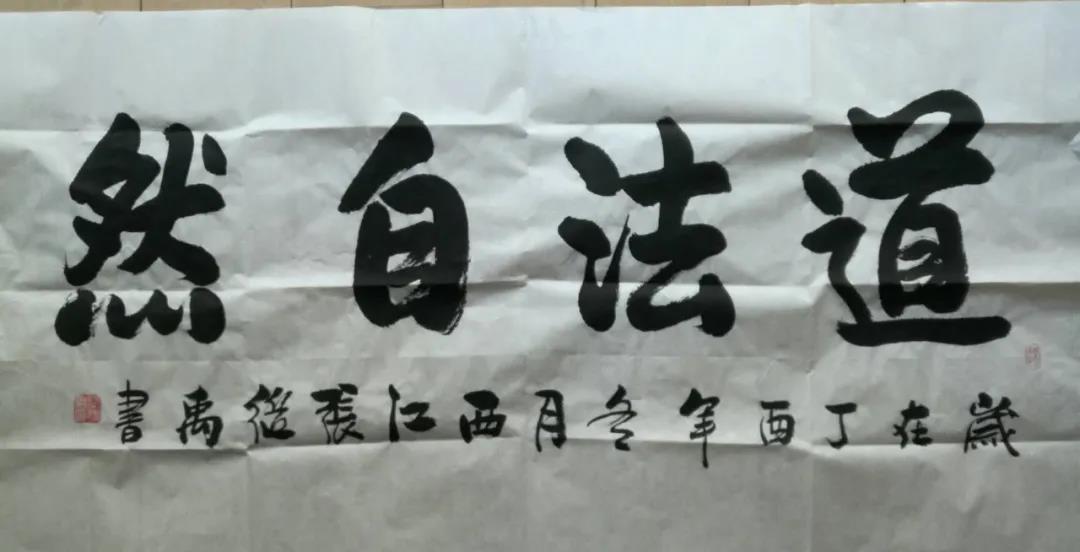 道法自然
歲在丁酉年冬月西江張從禹書